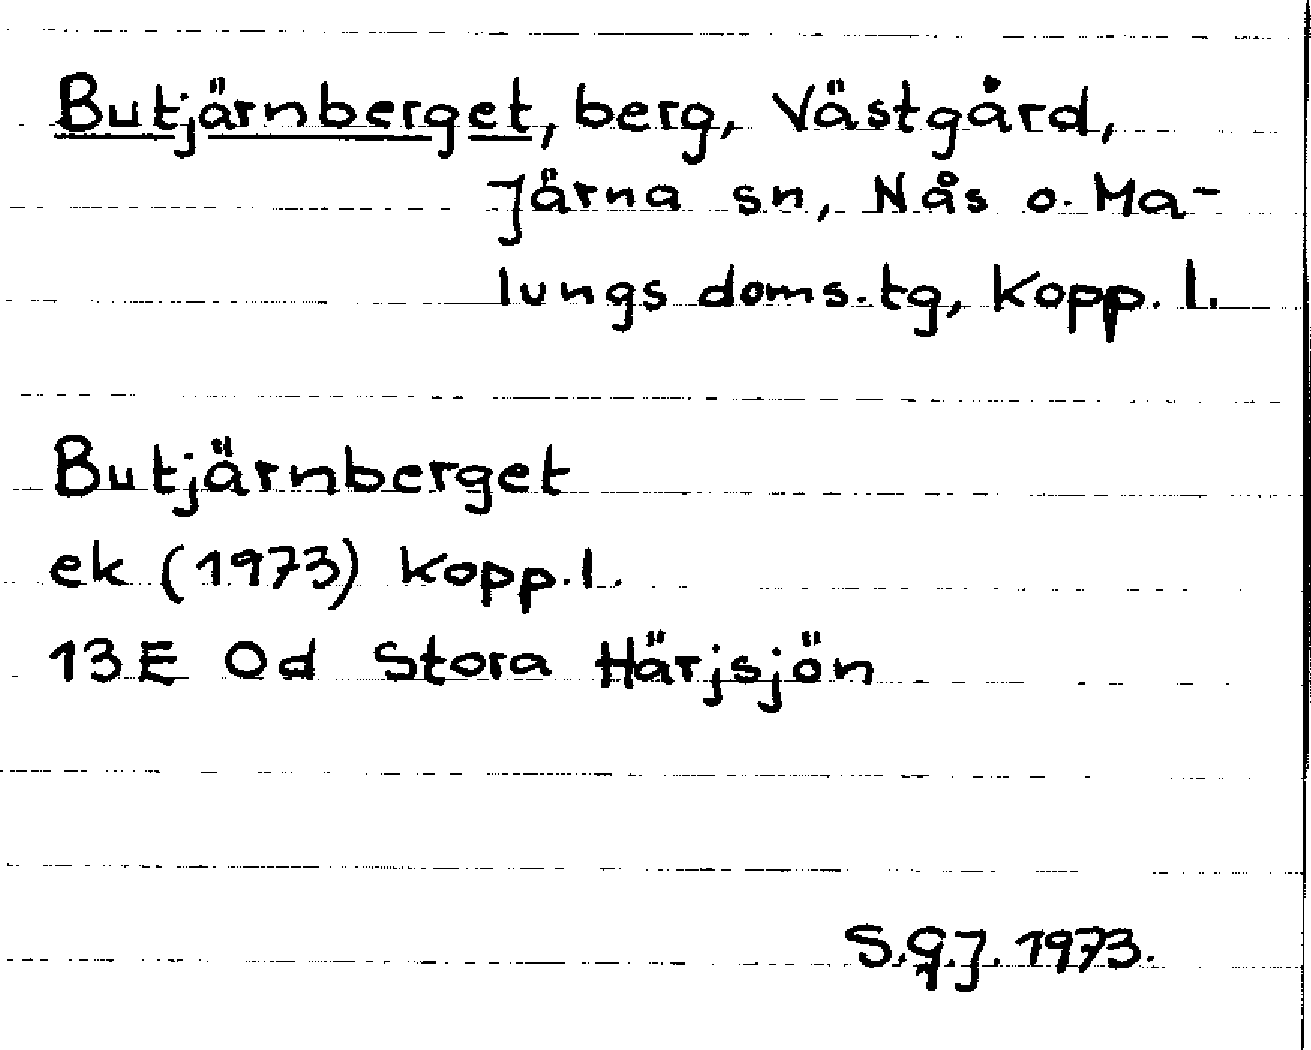 Butjärnberget, berg, Västgård,
Järna sn, Nås o. Ma-
lungs doms.tg, Kopp. l.
Butjärnberget
ek (1973) Kopp.l.
13E Od Stora Härjsjön
S.G.J. 1973.